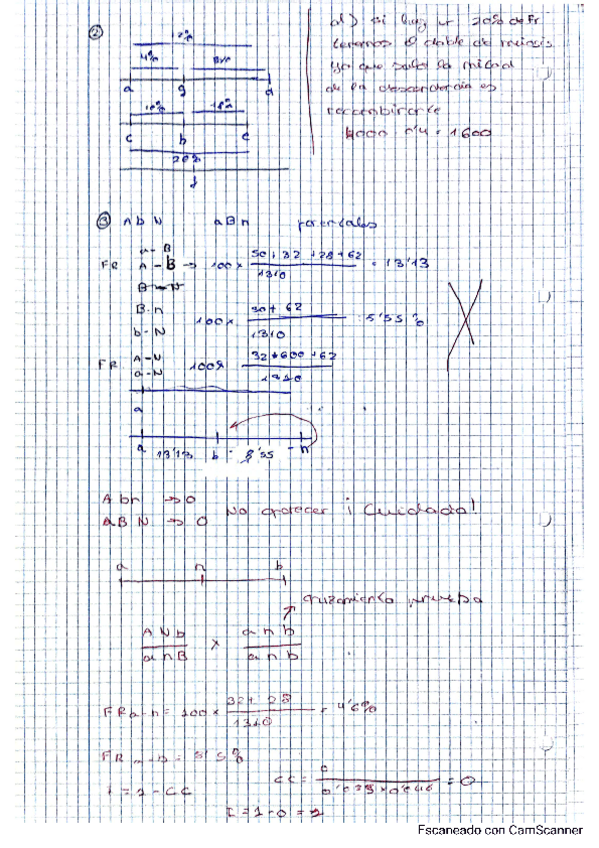 ②
4%
a g d
10% 18%
c b e
20%
d) si hay un 20% de Fr
tenemos el doble de meiosis
ya que solo la mitad
de la descendencia es
recombinante
4000 0'4 = 1600
③ A b N a B n parentales
a - B
FR A - B → 100 x 50 + 32 + 28 + 62 / 1310 = 13'13
B - N
B - n
b - N 100 x 30 + 62 / 1310 = 5'55 %
FR A - N
a - n 100 x 32 + 600 + 62 / 1310
a
a 13'13 b - 5'55 - n
A b n → 0
A B N → 0 No aparecer ¡Cuidado!
a n b
cruzamiento prueba
A N b / a n B x a n b / a n b
FR a-n = 100 x 32 + 28 / 1310 = 4'6%
FR n-b = 5'5%
I = 1 - CC
CC = 0 / = 0
I = 1 - 0 = 1
Escaneado con CamScanner